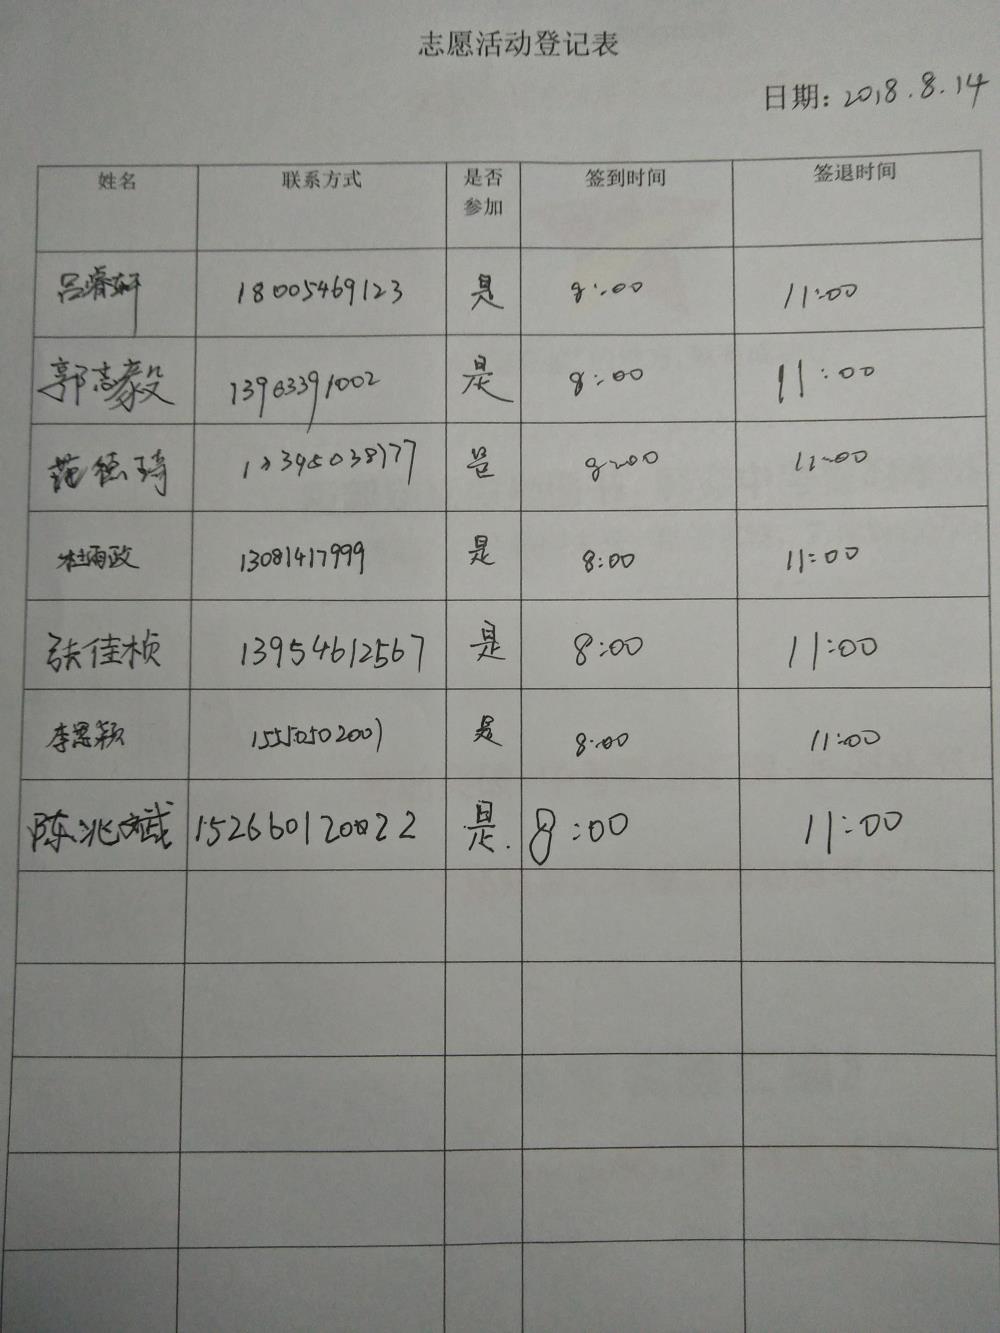 志愿活动登记表
日期: 2018.8.14
姓名 联系方式 是否参加 签到时间 签退时间
吕睿轩 18005469123 是 8:00 11:00
郭志毅 13963391002 是 8:00 11:00
范德琦 是 8:00 11:00
杜雨政 13081417999 是 8:00 11:00
张佳桢 13954612567 是 8:00 11:00
李思颖 15550502001 是 8:00 11:00
陈兆斌 152660120022 是. 8:00 11:00